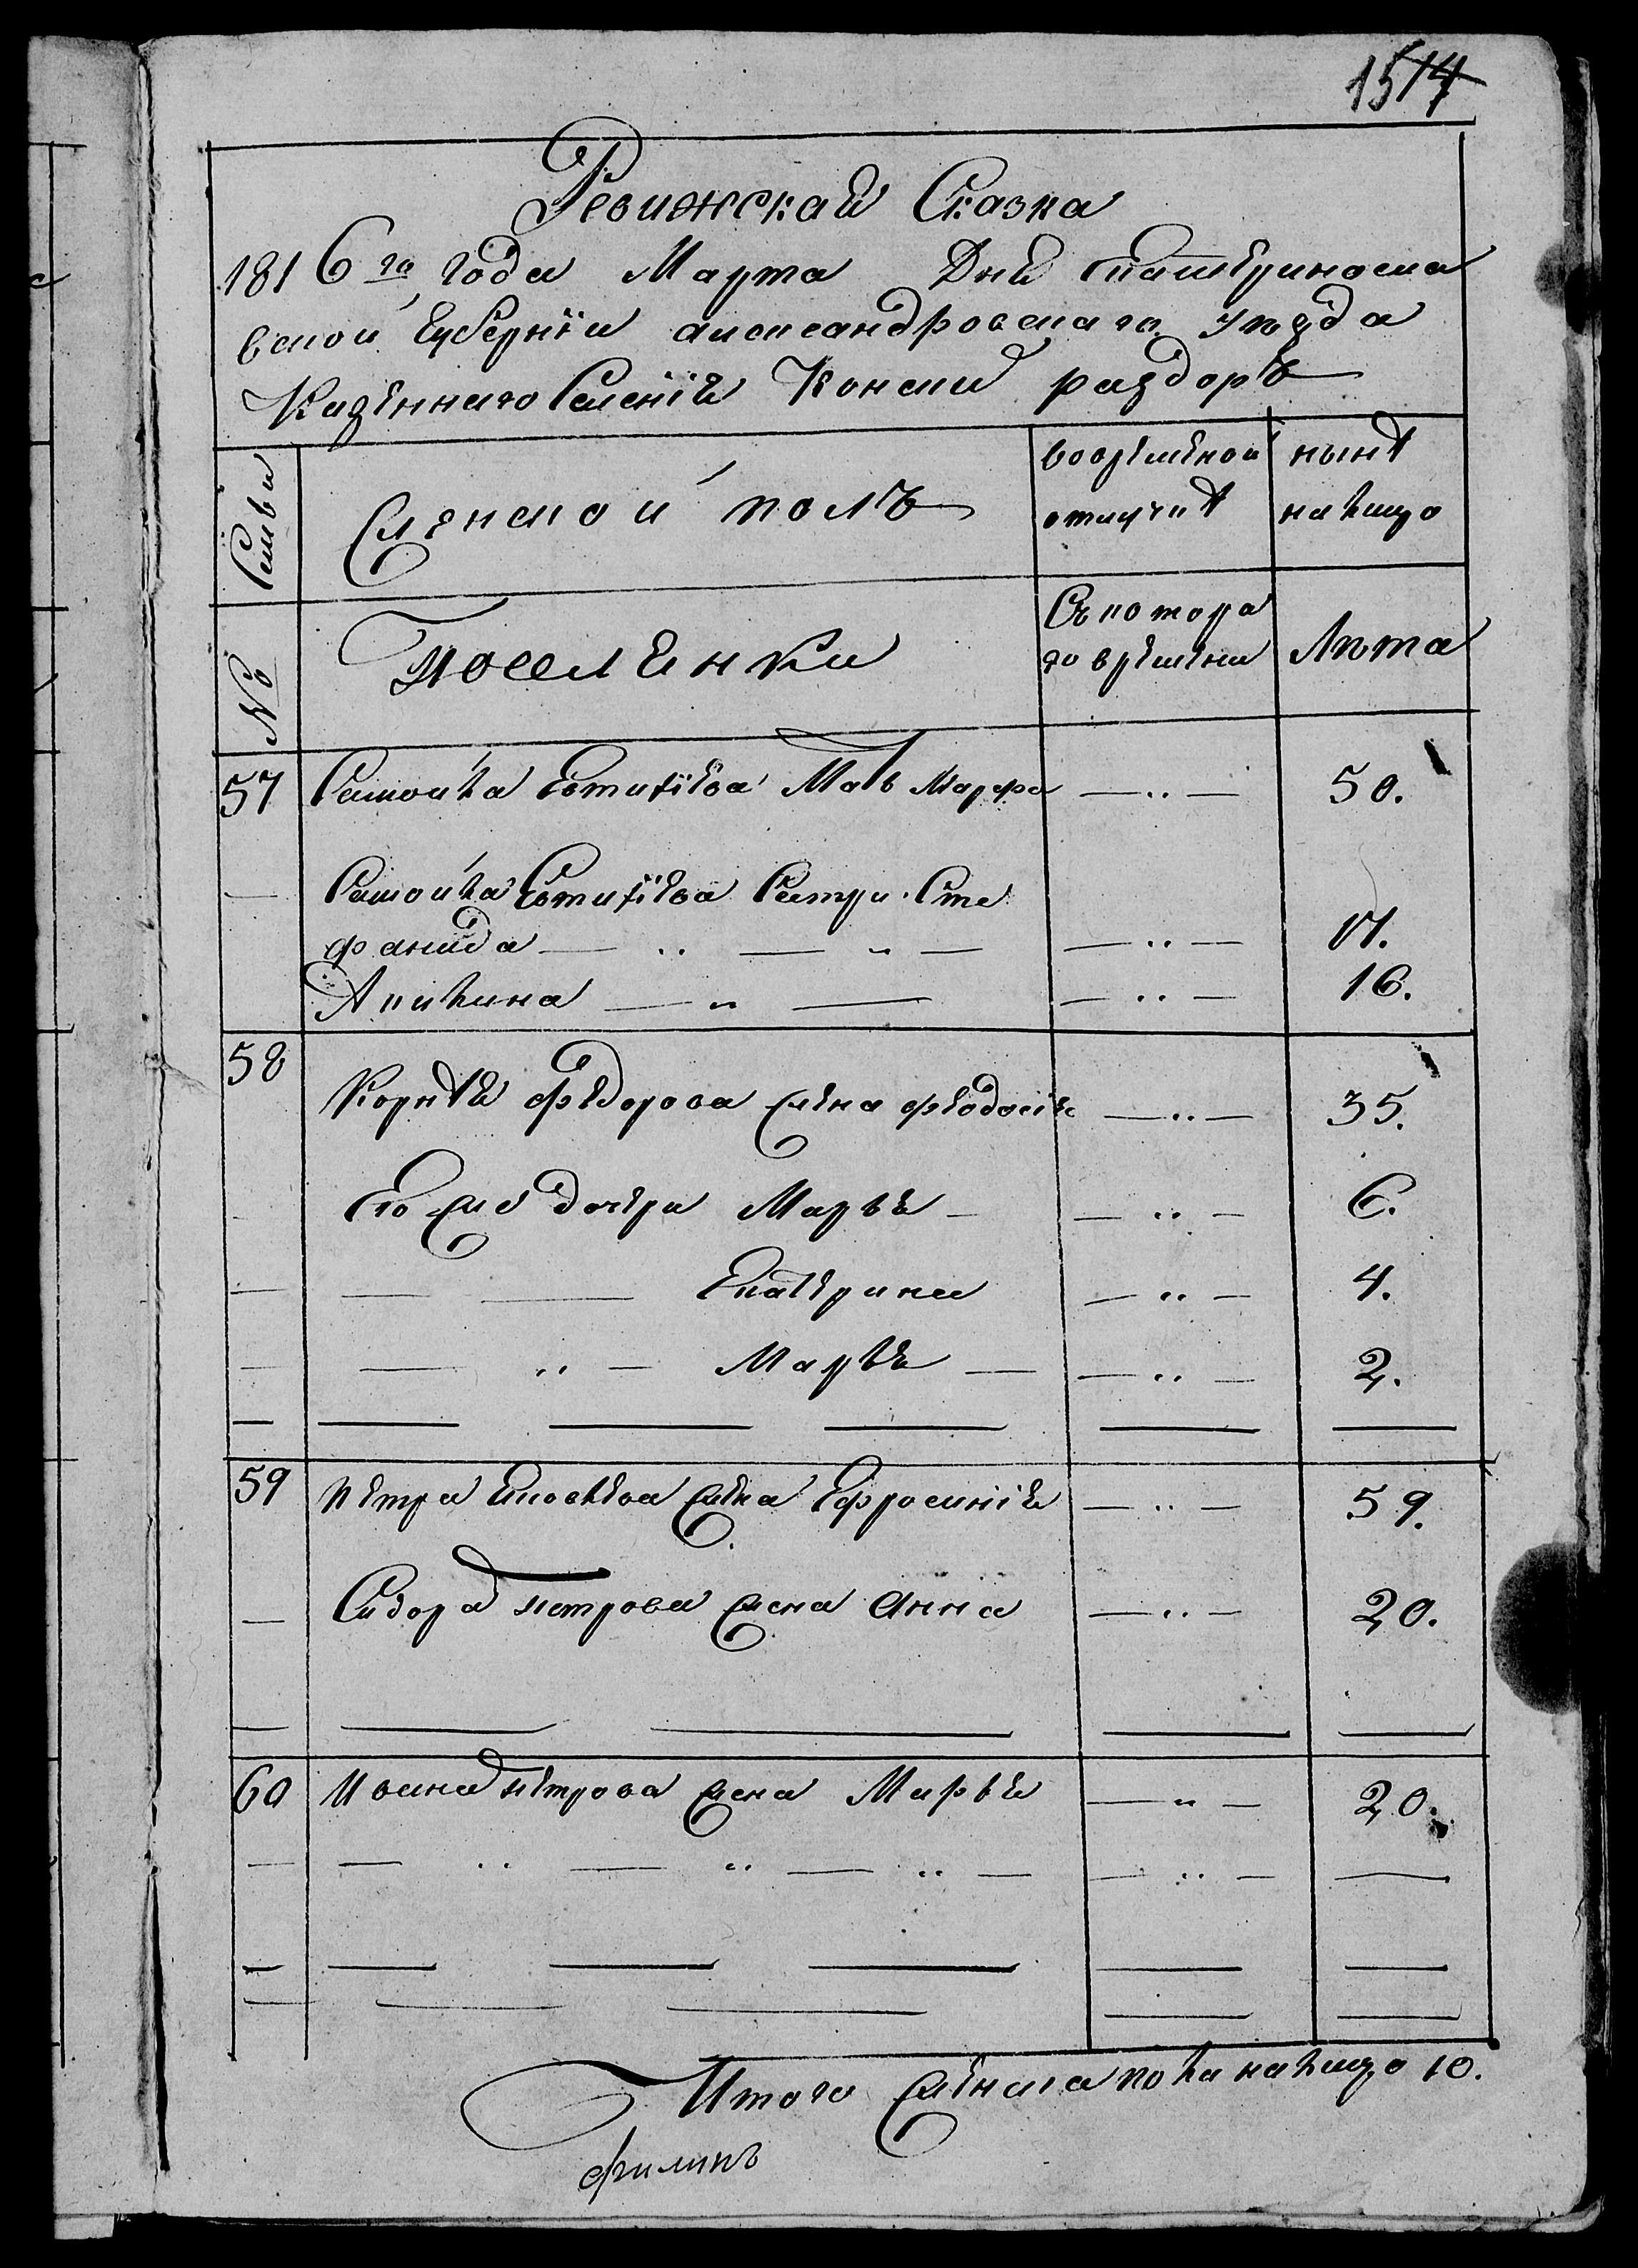 15 14
Ревижская Сказка
1816 го Года Марта Дня Екатериносла
вской Губернїи александровскаго уѣзда
Казеннаго Селенїя Конски раздоръ
Семьи
Женской полъ
вовременой
отлучкѣ
нынѣ
налицо
№
Поселенки
Съ котора
го времени
Лѣта
57 Самойла Евтихїева Мать Марфа — „ — 50.
— Самойла Евтихїева Сестри Сте
фанида — „ — „ — — „ — 17.
Акилина — „ — — „ — 16.
58
Корнѣя Федорова жена феодосїя — „ — 35.
Его же дочери Марья — — „ — 6.
— — — Екатерина — „ — 4.
— — „ — Марья — — „ — 2.
59 Петра жена Ефросинїя — „ — 59.
— Сидора петрова жена Анна — „ — 20.
60 Ивана петрова жена Марья — „ — 20.
— — „ — „ — „ — — „ — —
Итого женска пола налицо 10.
филипъ